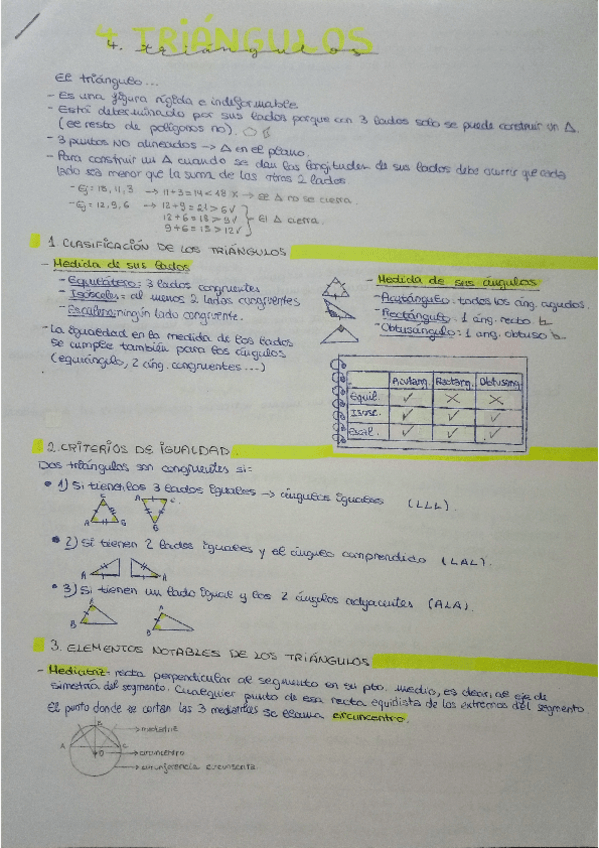 4. TRIÁNGULOS
4. triángulos
El triángulo...
- Es una figura rígida e indeformable
- Está determinado por sus lados porque con 3 lados solo se puede construir un △.
(el resto de polígonos no).
- 3 puntos NO alineados → △ en el plano.
- Para construir un △ cuando se dan las longitudes de sus lados debe ocurrir que cada
lado sea menor que la suma de los otros 2 lados.
- Ej = 18, 11, 3 → 11+3=14<18 X → El △ no se cierra.
- Ej = 12, 9, 6 → 12+9=21>6 ✓
12+6=18>9 ✓
9+6=15>12 ✓
El △ cierra.
1. CLASIFICACIÓN DE LOS TRIÁNGULOS
- Medida de sus lados
- Equilátero: 3 lados congruentes
- Isósceles: al menos 2 lados congruentes
- Escaleno: ningún lado congruente.
- La igualdad en la medida de los lados
se cumple también para los ángulos
(equiángulo, 2 áng. congruentes...)
- Medida de sus ángulos
- Acutángulo: todos los áng. agudos.
- Rectángulo: 1 áng. recto
- Obtusángulo: 1 ang. obtuso
Acutáng. Rectáng. Obtusáng.
Equil. ✓ X X
Isósc. ✓ ✓ ✓
Escal. ✓ ✓ ✓
2. CRITERIOS DE IGUALDAD.
Dos triángulos son congruentes si:
• 1) Si tienen los 3 lados iguales → ángulos iguales (LLL).
A B C A C B
• 2) Si tienen 2 lados iguales y el ángulo comprendido (LAL).
A A
• 3) Si tienen un lado igual y los 2 ángulos adyacentes (ALA).
A B A B
3. ELEMENTOS NOTABLES DE LOS TRIÁNGULOS
- Mediatriz: recta perpendicular al segmento en su pto. medio, es decir, al eje de
simetría del segmento. Cualquier punto de esa recta equidista de los extremos del segmento
El punto donde se cortan las 3 mediatrices se llama circuncentro.
B
→ mediatriz
A C
O → circuncentro
→ circunferencia circunscrita